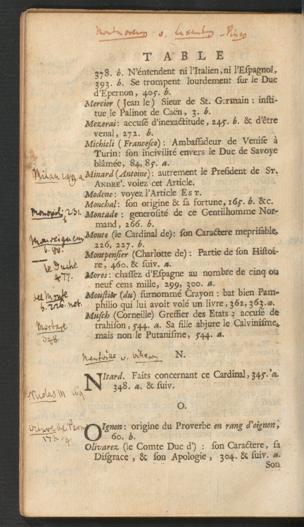 TABLE
378. b. N'entendent ni l'Italien, ni l'Espagnol,
393. b. Se trompent lourdement sur le Duc
d'Epernon, 405. b.
Mercier (Jean le) Sieur de St. Germain: insti-
tue le Palinot de Caën, 3. b.
Mezerai: accusé d'inexactitude, 245. b. & d'être
venal, 272. b.
Michieli (Francesco): Ambassadeur de Venise à
Turin: son incivilité envers le Duc de Savoye
blâmée, 84, 85. a.
Minard (Antoine): autrement le President de ST.
ANDRE'. voiez cet Article.
Modene: voyez l'Article EST.
Monchal: son origine & sa fortune, 165. b. &c.
Montade: generosité de ce Gentilhomme Nor-
mand, 266. b.
Monte (le Cardinal de): son Caractere meprisable,
226, 227. b.
Montpensier (Charlotte de): Partie de son Histoi-
re, 460. & suiv. a.
Mores: chassez d'Espagne au nombre de cinq ou
neuf cens mille, 299, 300. a.
Moustier (du) surnommé Crayon: bat bien Pam-
philio qui lui avoit volé un livre, 362, 363. a.
Musch (Corneille) Greffier des Etats: accusé de
trahison, 544. a. Sa fille abjure le Calvinisme,
mais non le Putanisme, 544. a.
N.
NItard. Faits concernant ce Cardinal, 345. a.
348. a. & suiv.
O.
OIgnon: origine du Proverbe en rang d'oignon,
60. b.
Olivarez (le Comte Duc d'): son Caractere, sa
Disgrace, & son Apologie, 304. & suiv. a.
Son